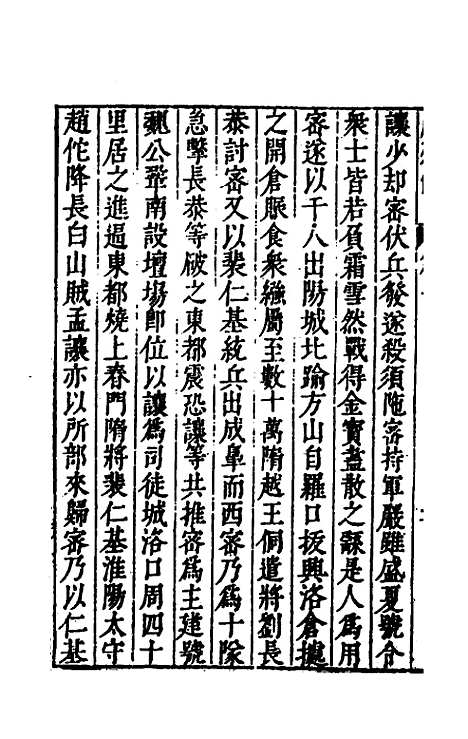 讓少却密伏兵發遂殺須陁密持軍嚴雖盛夏號令
衆士皆若負霜雪然戰得金寶盡散之繇是人爲用
密遂以千人出陽城北踰方山自羅口拔興洛倉據
之開倉賑食衆繈屬至數十萬隋越王侗遣將劉長
恭討密又以裴仁基統兵出成臯而西密乃爲十隊
急擊長恭等破之東都震恐讓等共推密爲主建號
魏公鞏南設壇場卽位以讓爲司徒城洛口周四十
里居之進逼東都燒上春門隋將裴仁基淮陽太守
趙佗降長白山賊孟讓亦以所部來歸密乃以仁基